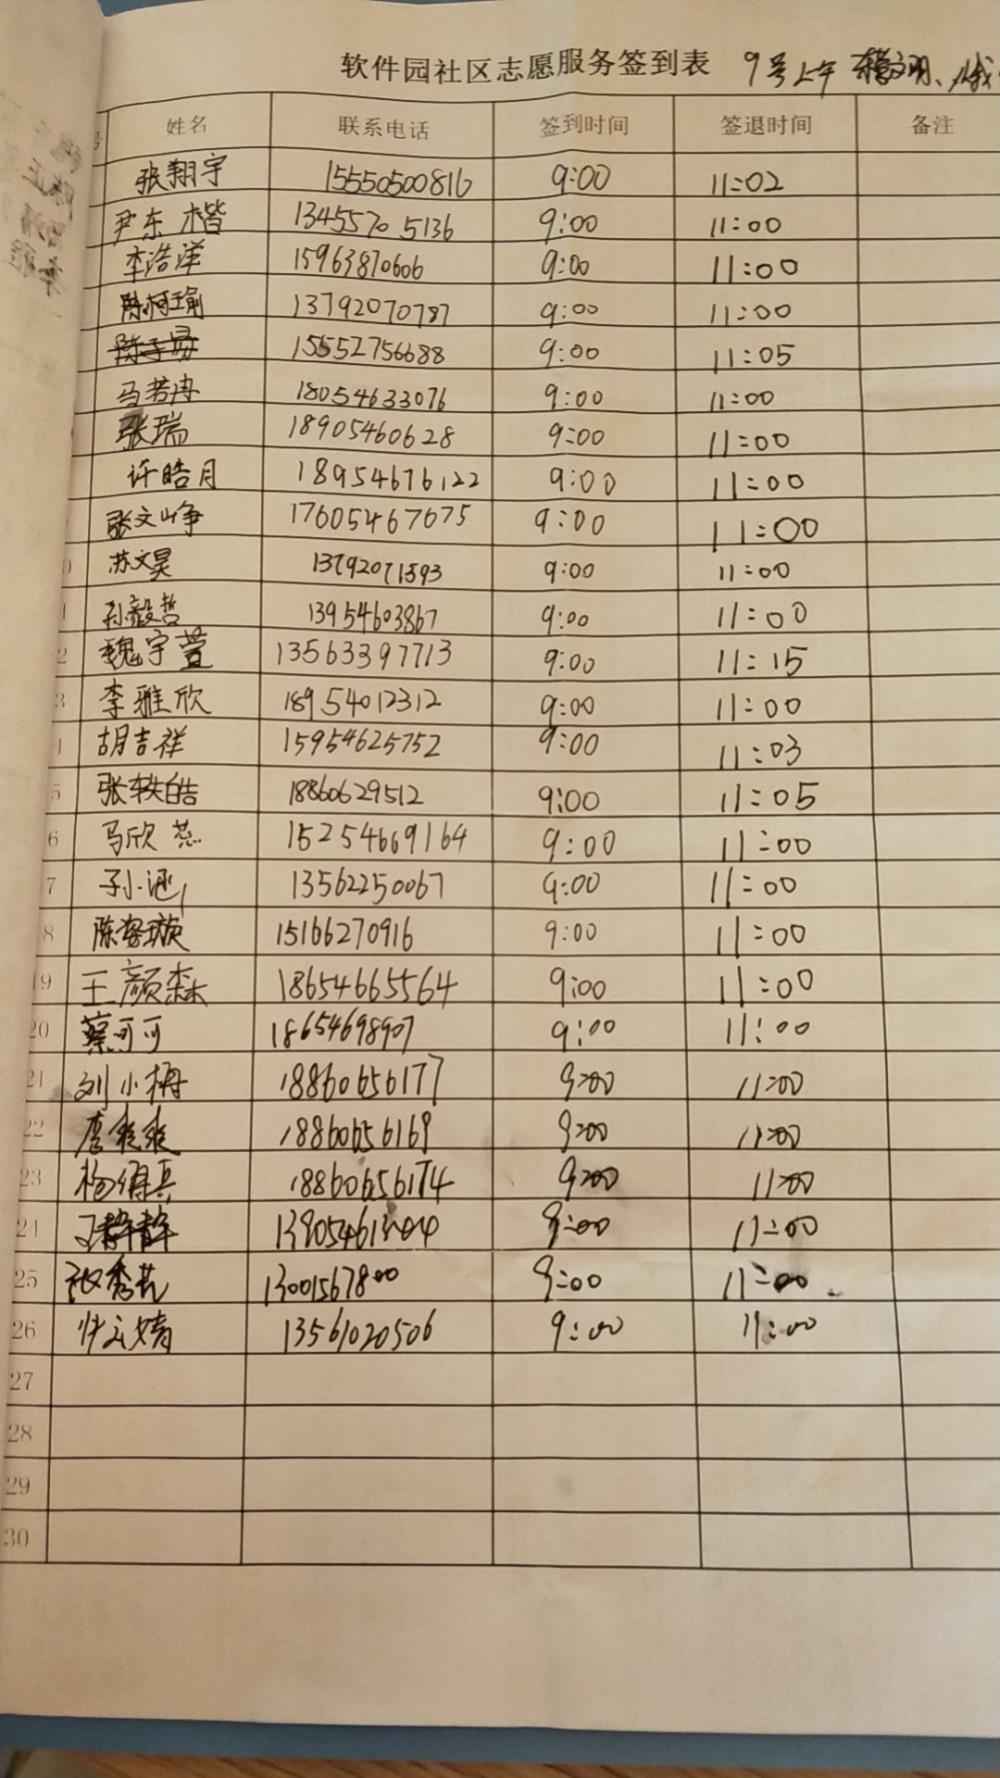 软件园社区志愿服务签到表 9号上午
姓名 联系电话 签到时间 签退时间 备注
张翔宇 15550500816 9:00 11:02
尹东楷 13455705136 9:00 11:00
李浩洋 15963870606 9:00 11:00
陈柯瑜 13792070787 9:00 11:00
15552756688 9:00 11:05
马若冉 18054633076 9:00 11:00
张瑞 18905460628 9:00 11:00
许皓月 18954676122 9:00 11:00
张文峥 17605467675 9:00 11:00
0 苏文昊 13792071593 9:00 11:00
1 孙毅哲 13954603867 9:00 11:00
2 魏宇萱 13563397713 9:00 11:15
3 李雅欣 18954012312 9:00 11:00
胡吉祥 15954625752 9:00 11:03
5 张轶皓 18860629512 9:00 11:05
6 马欣蕊 15254669164 9:00 11:00
7 孙涵 13562250067 9:00 11:00
8 陈姿璇 15166270916 9:00 11:00
19 王颜森 18654665564 9:00 11:00
20 蔡可可 18654698907 9:00 11:00
21 刘小梅 18860656177 9:00 11:00
22 唐爽爽 18860656169 9:00 11:00
23 杨俊兵 18860656174 9:00 11:00
24 王静静 9:00 11:00
25 张秀芸 13001567800 9:00 11:00
26 13561020506 9:00 11:00
27
28
29
30